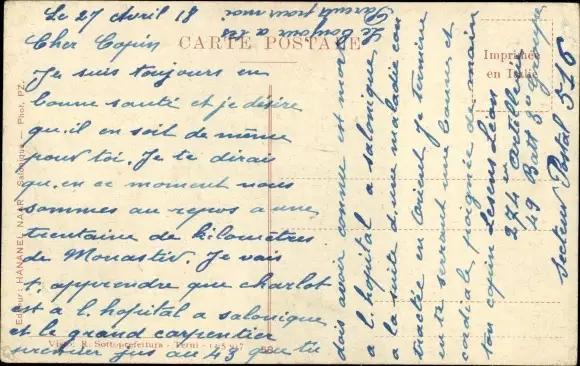 Le 27 Avril 18
CARTE POSTALE
Cher Copin
Je suis toujours en
bonne santé et je désire
qu'il en soit de même
pour toi. Je te dirais
qu'en ce moment nous
sommes au repos a une
trentaine de kilomètres
de Monastir. Je vais
t'apprendre que charlot
est a l'hopital a salonique
et le grand carpentier
premier jus au 43 que tu
dois avoir connue est mort
a l'hopital a salonique
a la suite d'une maladie con
tractée en Orient je termine
en te serrant une bonne et
cordiale poignée de main
ton copin Lesens Léon
274 Artillerie
49 Batt 3e groupe
secteur Postal 516
Le bonjour a tes
Parents pour moi
Imprimée
en Italie
Editeur: HANANEL NAAR - Salonique - Phot. PZ.
Visto R. Sottoprefettura - Terni -